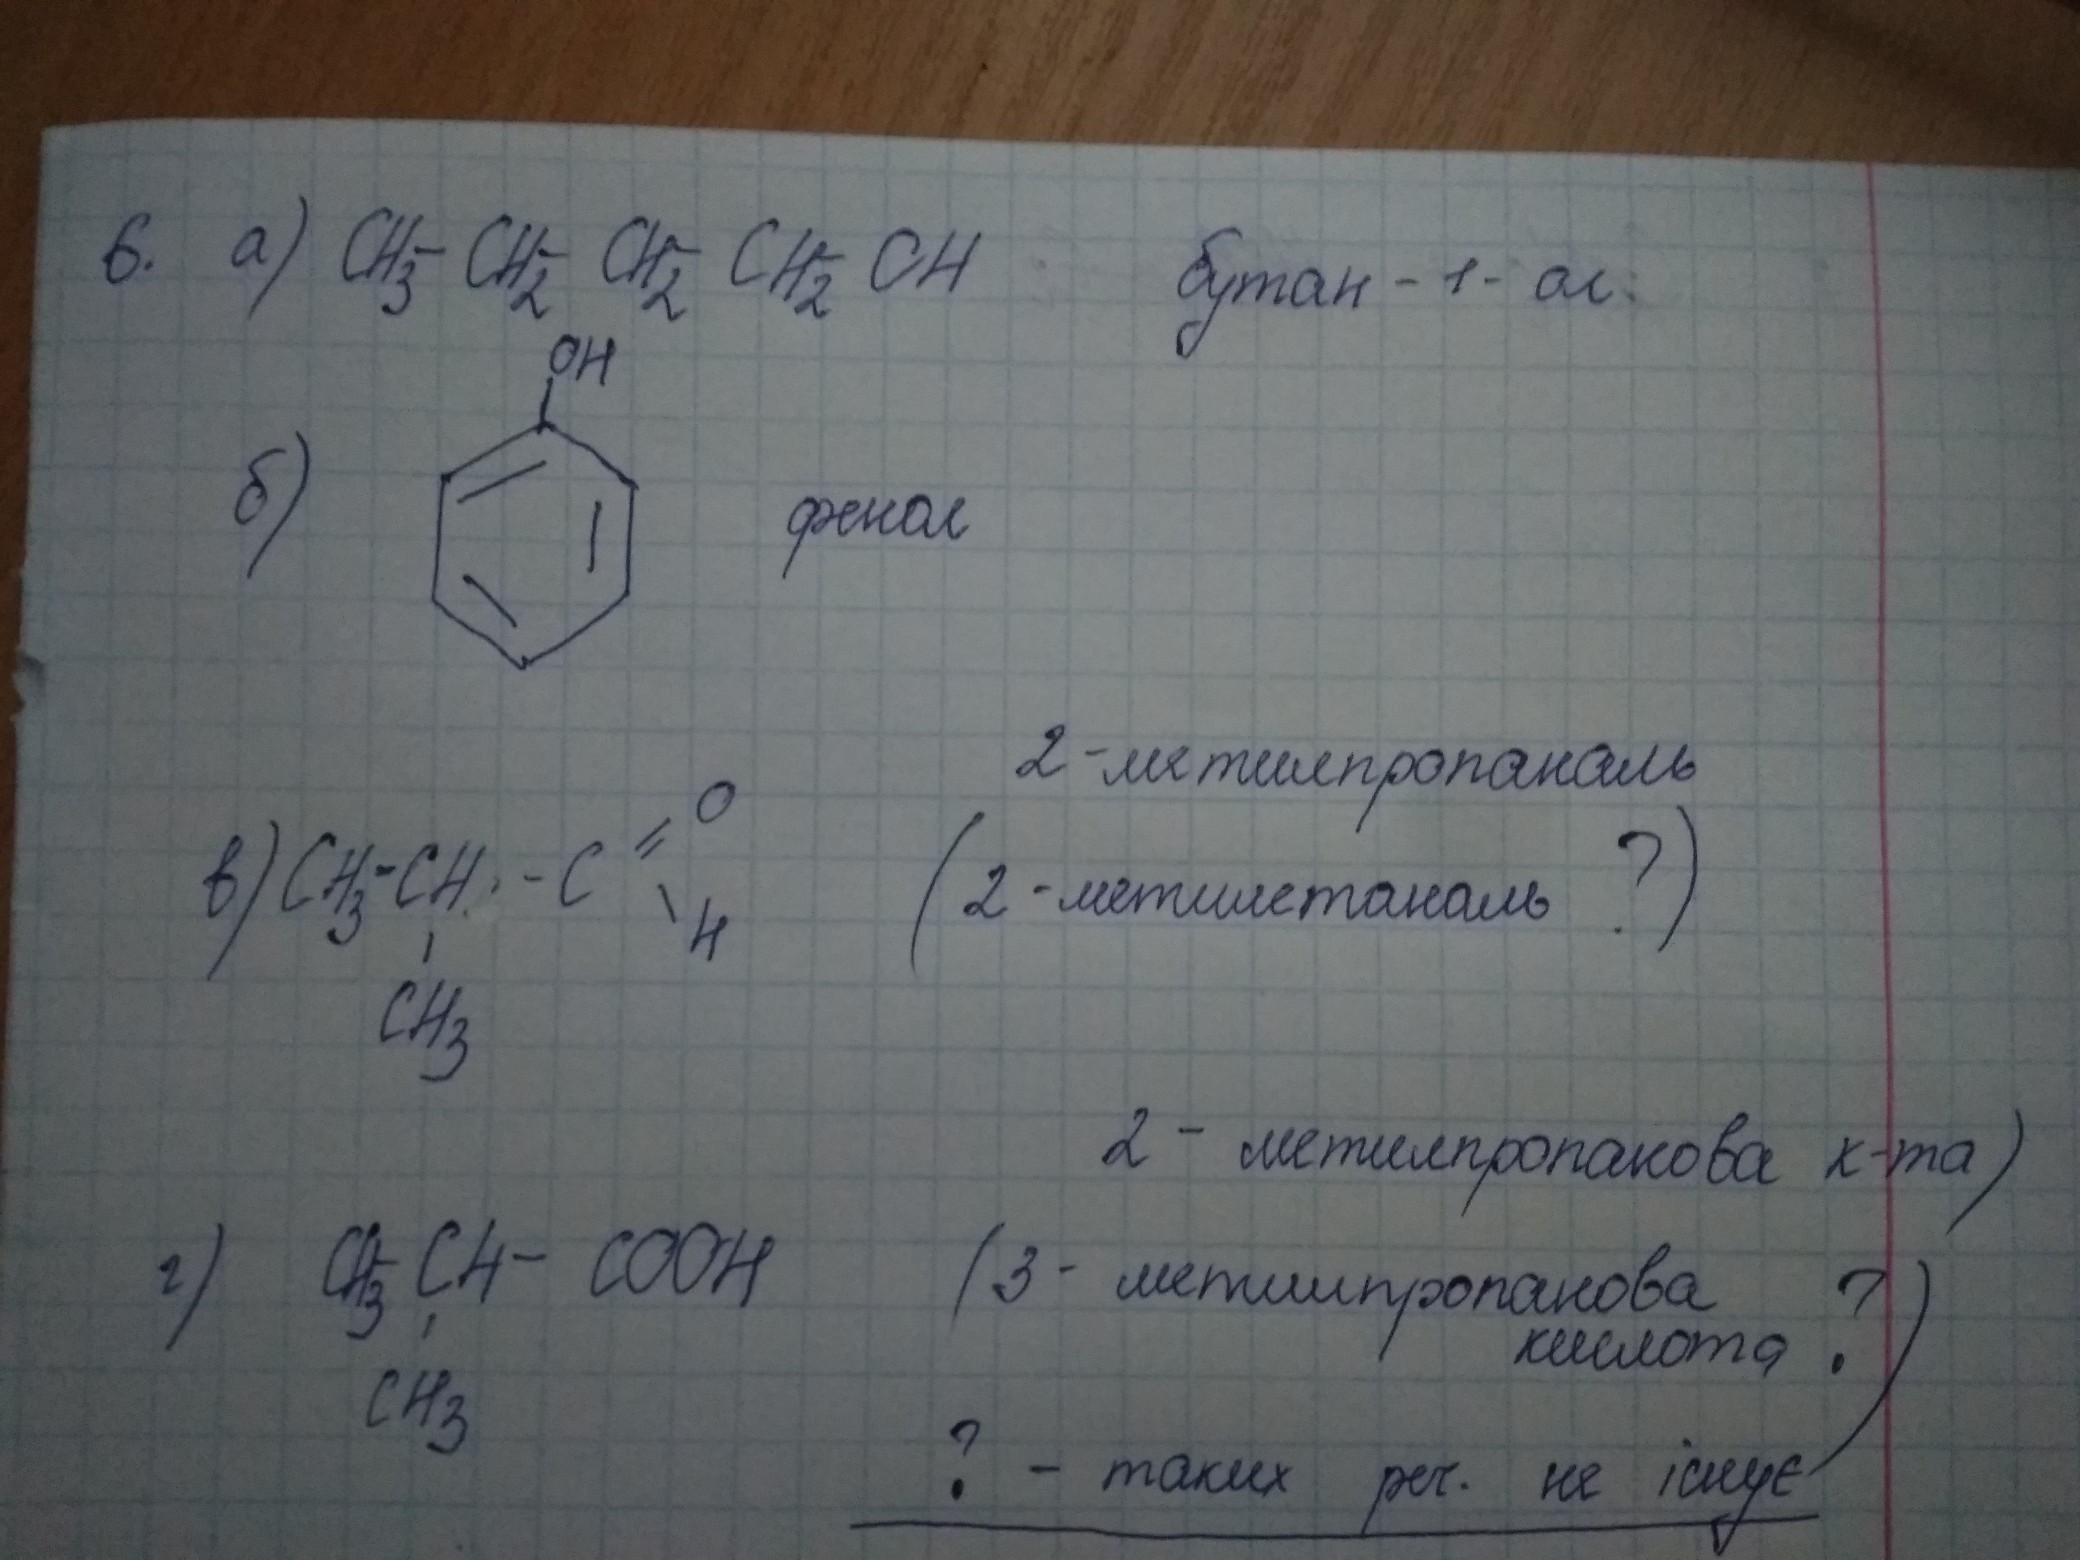 6. а) CH3 - CH2 - CH2 - CH2 - OH бутан - 1 - ол.
OH
б) фенол
2 - метилпропаналь
в) CH3 - CH - C = O (2 - метилетаналь ?)
\ H
CH3
2 - метилпропанова к-та)
г) CH3 - CH - COOH (3 - метилпропанова
кислота ?)
CH3
? - таких реч. не існує